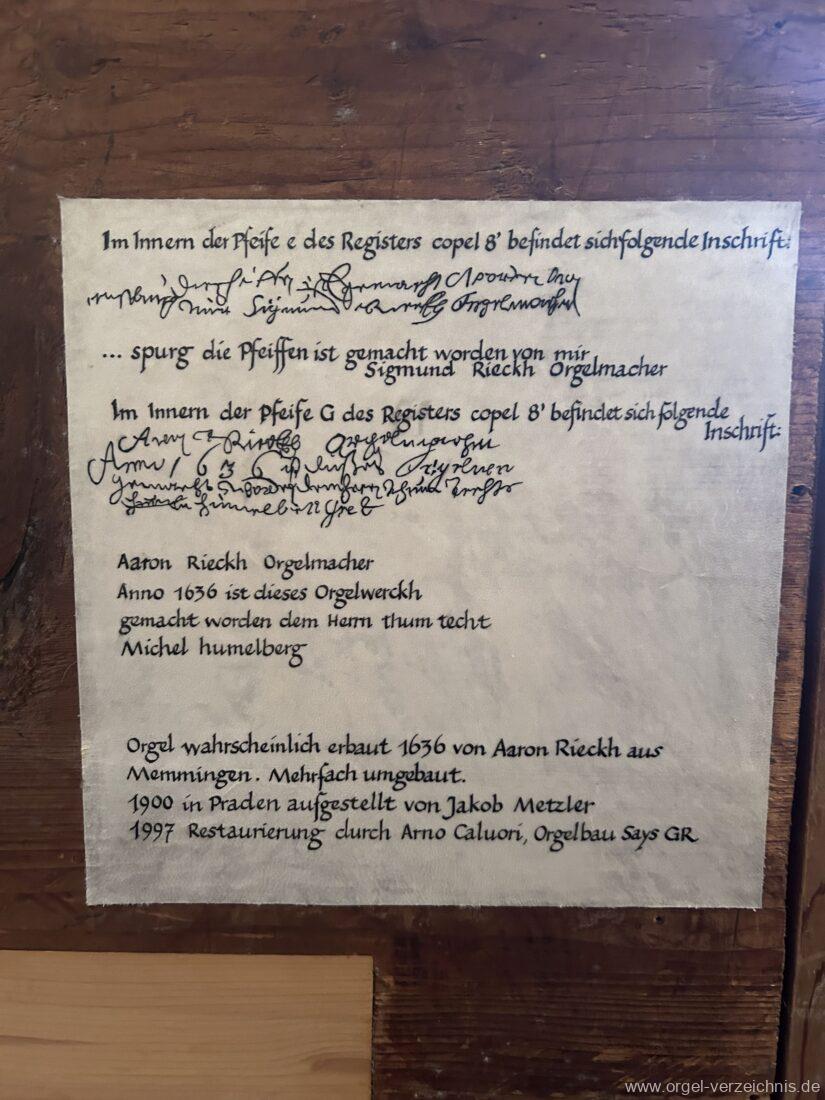 Im Innern der Pfeife e des Registers copel 8' befindet sich folgende Inschrift:
Sigmund Orgelmacher
... spurg die Pfeiffen ist gemacht worden von mir
Sigmund Rieckh Orgelmacher
Im Innern der Pfeife G des Registers copel 8' befindet sich folgende
Inschrift:
Anno 1636
Aaron Rieckh Orgelmacher
Anno 1636 ist dieses Orgelwerckh
gemacht worden dem Herrn thum techt
Michel humelberg
Orgel wahrscheinlich erbaut 1636 von Aaron Rieckh aus
Memmingen. Mehrfach umgebaut.
1900 in Praden aufgestellt von Jakob Metzler
1997 Restaurierung durch Arno Caluori, Orgelbau Says GR
www.orgel-verzeichnis.de